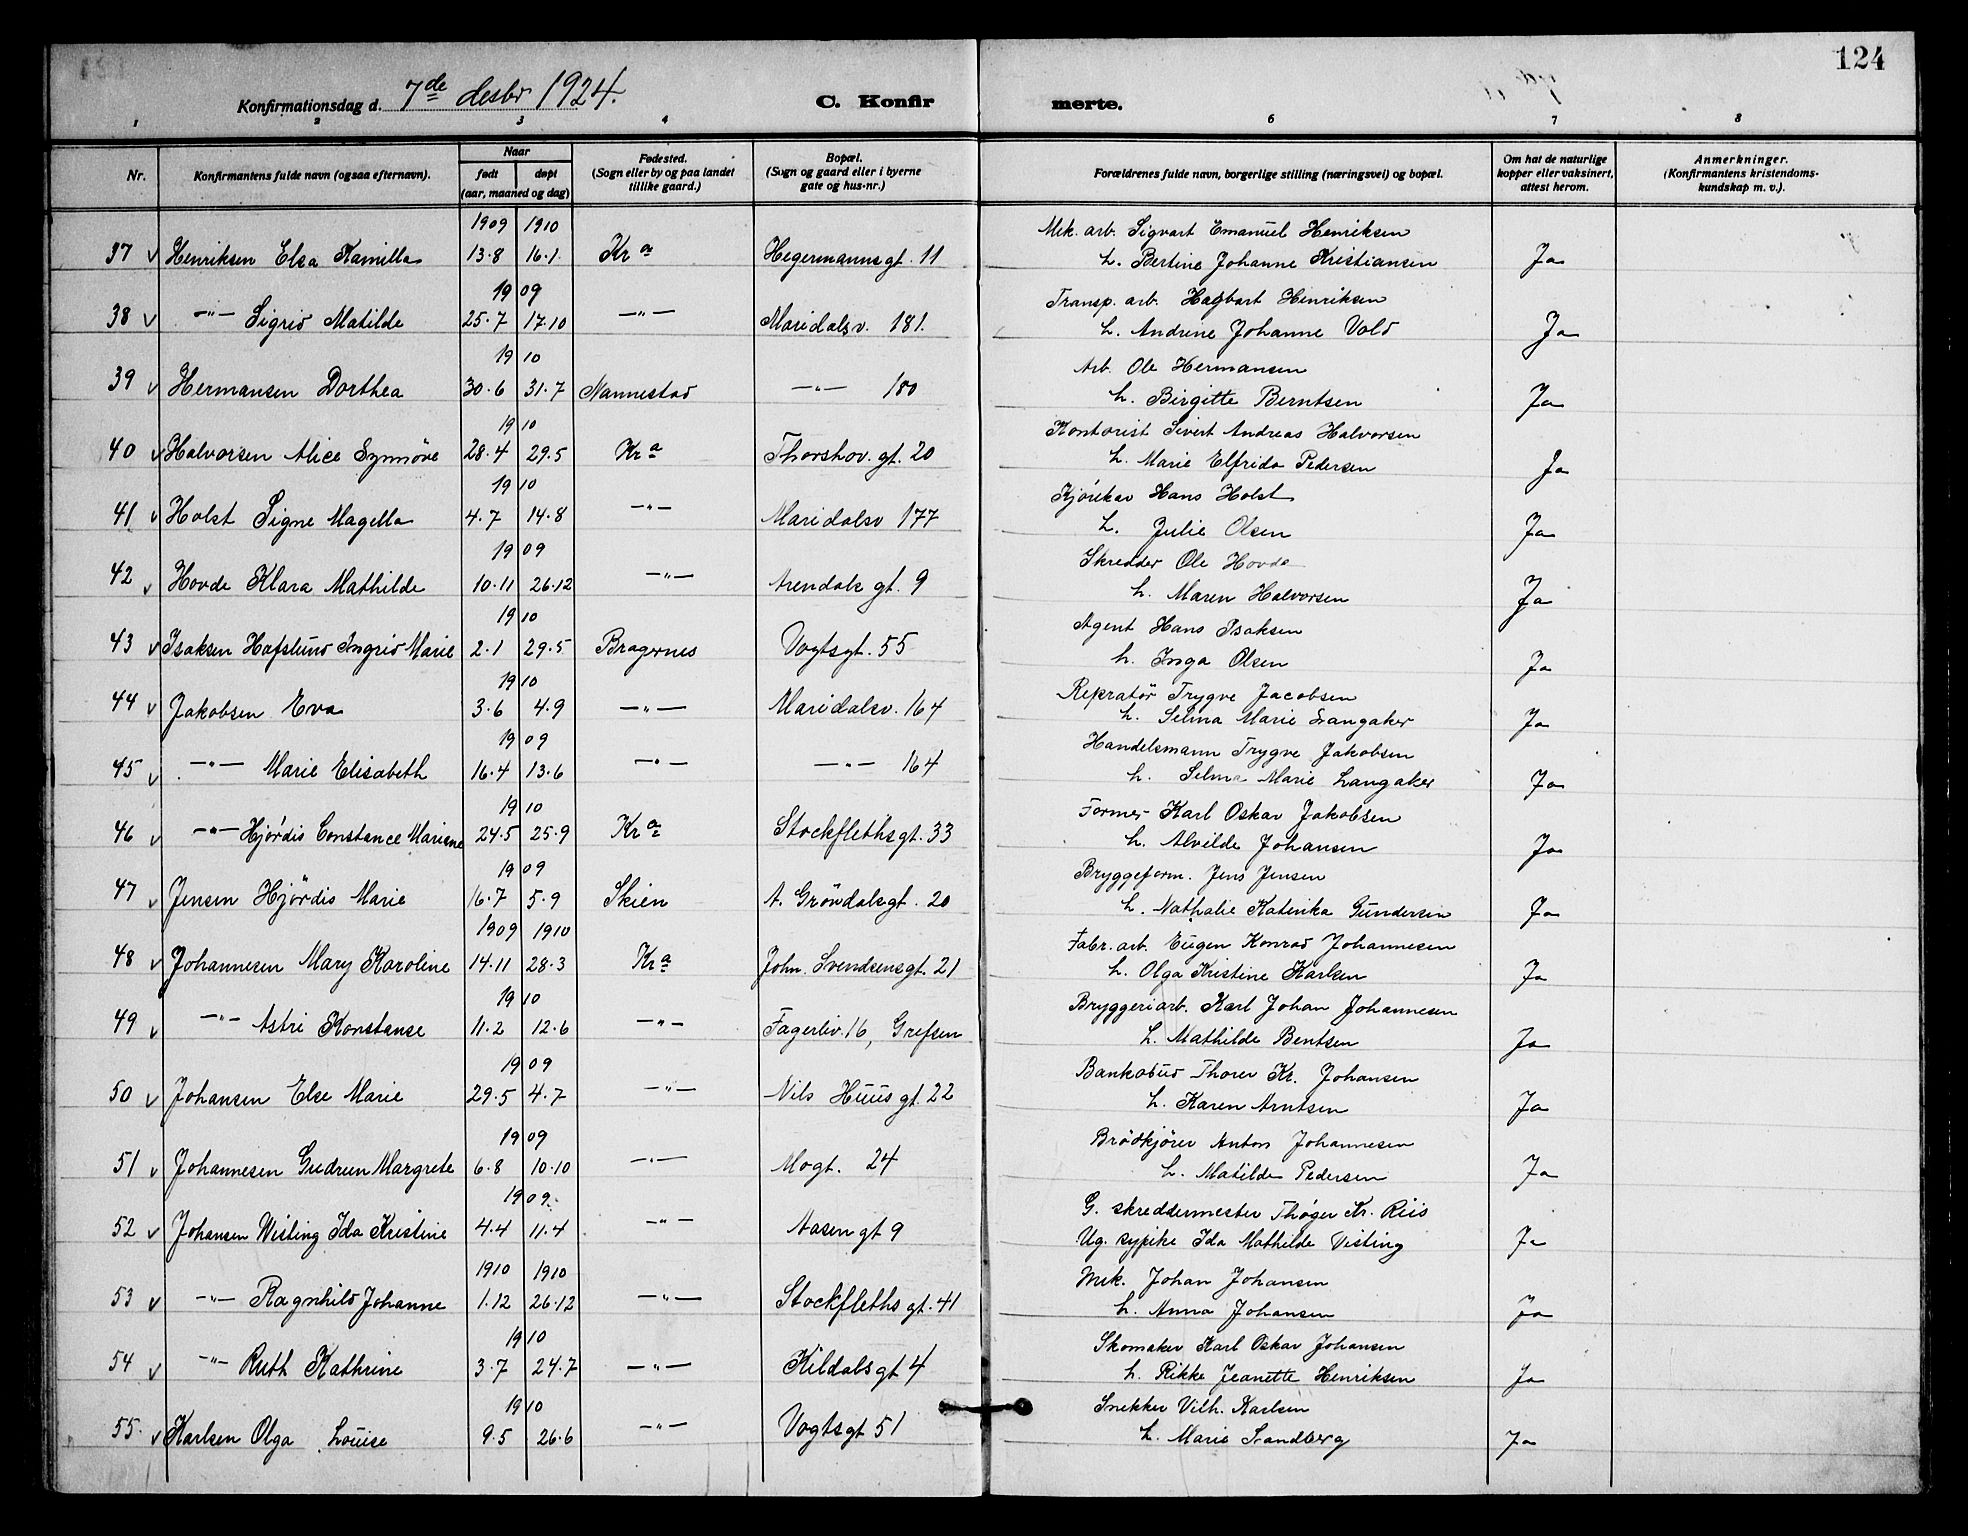 124
Konfirmationsdag d. 7de desbr 1924.
C. Konfir merte.
1 2 3 4 6 7 8
Nr.
Konfirmantens fulde navn (ogsaa efternavn).
Naar
født døpt
(aar, maaned og dag)
Fødested.
(Sogn eller by og paa landet
tillike gaard.)
Bopæl.
(Sogn og gaard eller i byerne
gate og hus-nr.)
Forældrenes fulde navn, borgerlige stilling (næringsvei) og bopæl.
Om hat de naturlige
kopper eller vaksinert,
attest herom.
Anmerkninger.
(Konfirmantens kristendoms-
kundskap m. v.).
1909 1910 Mek. arb. Sigvart Emanuel Henriksen
37 v Henriksen Elsa Kamilla 13.8 16.1. Kra Hegermannsgt. 11 h. Bertine Johanne Kristiansen Ja
1909 Transp. arb. Hagbart Henriksen
38 v —"— Sigrid Matilde 25.7 17.10 —"— Maridalsv. 181. h. Andrine Johanne Vold Ja
1910 Arb. Ole Hermansen
39 v Hermansen Dorthea 30.6 31.7 Nannestad —"— 180 h. Birgitte Berntsen Ja
1910 Kontorist Sivert Andreas Halvorsen
40 v Halvorsen Alice Synnöve 28.4 29.5 Kra Thorshov. gt. 20 h. Marie Elfrida Pedersen Ja
1910 Kjörekar Hans Holst
41 v Holst Signe Magella 4.7 14.8 —"— Maridalsv 177 h. Julie Olsen Ja
1909 Skredder Ole Hovde
42 v Hovde Klara Mathilde 10.11 26.12 —"— Arendals gt. 9 h. Maren Halvorsen Ja
1910 Agent Hans Isaksen
43 v Isaksen Hafslund Ingrid Marie 2.1 29.5 Bragernes Vogtsgt. 55 h. Inga Olsen Ja
1910 Repratör Trygve Jacobsen
44 v Jakobsen Eva 3.6 4.9 —"— Maridalsv. 164 h. Selma Marie Langaker Ja
1909 Handelsmann Trygve Jakobsen
45 v —"— Marie Elisabeth 16.4 13.6 —"— —"— 164 h. Selma Marie Langaker Ja
1910 Former Karl Oskar Jakobsen
46 v —"— Hjördis Constance Mariane 24.5 25.9 Kra Stockflethsgt. 33 h. Alvilde Johansen Ja
1909 Bryggeform. Jens Jensen
47 v Jensen Hjördis Marie 16.7 5.9 Skien A. Gröndalsgt. 20 h. Nathalie Katinka Gundersen Ja
1909 1910 Fabr. arb. Eugen Konrad Johannesen
48 v Johannesen Mary Karoline 14.11 28.3 Kra John. Svendsensgt. 21 h. Olga Kristine Karlsen Ja
1910 Bryggeriarb. Karl Johan Johannesen
49 v —"— Astri Konstanse 11.2 12.6 —"— Fagerliv. 16, Grefsen h. Mathilde Bentsen Ja
1909 Bankobud Thorer Kr. Johansen
50 v Johansen Else Marie 29.5 4.7 —"— Nils Huus gt. 22 h. Karen Arntsen Ja
1909 Brödkjörer Anton Johannesen
51 v Johannesen Gudrun Margrete 6.8 10.10 —"— Mogt. 24 h. Matilde Pedersen Ja
1909. G. skreddermester Thöger Kr. Riis
52 v Johansen Wisting Ida Kristine 4.4 11.4 —"— Aasengt 9 Ug. sypike Ida Mathilde Visting Ja
1910 1910 Mek. Johan Johansen
53 v —"— Ragnhild Johanne 1.12 26.12 —"— Stockfleths gt. 41 h. Anna Johansen Ja
1910 Skomaker Karl Oskar Johansen
54 v —"— Ruth Kathrine 3.7 24.7 —"— Kildalsgt 4 h. Rikke Jeanette Henriksen Ja
1910 Snekker Vilh. Karlsen
55. v Karlsen Olga Louise 9.5 26.6 —"— Vogtsgt 51 h. Marie Sandberg Ja